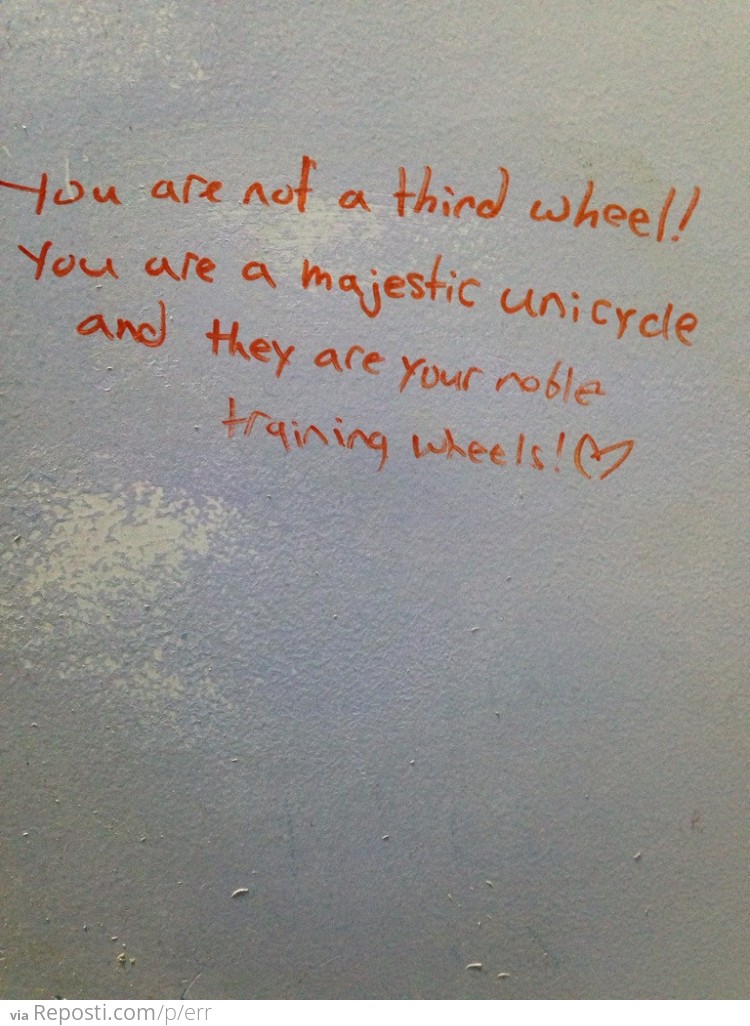 You are not a third wheel!
You are a majestic unicycle
and they are your noble
training wheels! ♡
via Reposti.com/p/err